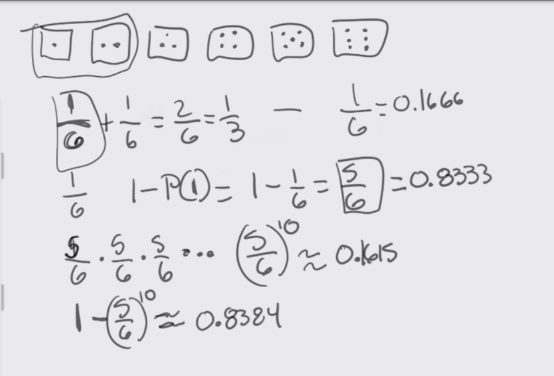 1/6 + 1/6 = 2/6 = 1/3 — 1/6 = 0.1666
1/6 1-P(1) = 1 - 1/6 = 5/6 = 0.8333
5/6 · 5/6 · 5/6 ... (5/6)^10 ≈ 0.1615
1-(5/6)^10 ≈ 0.8384